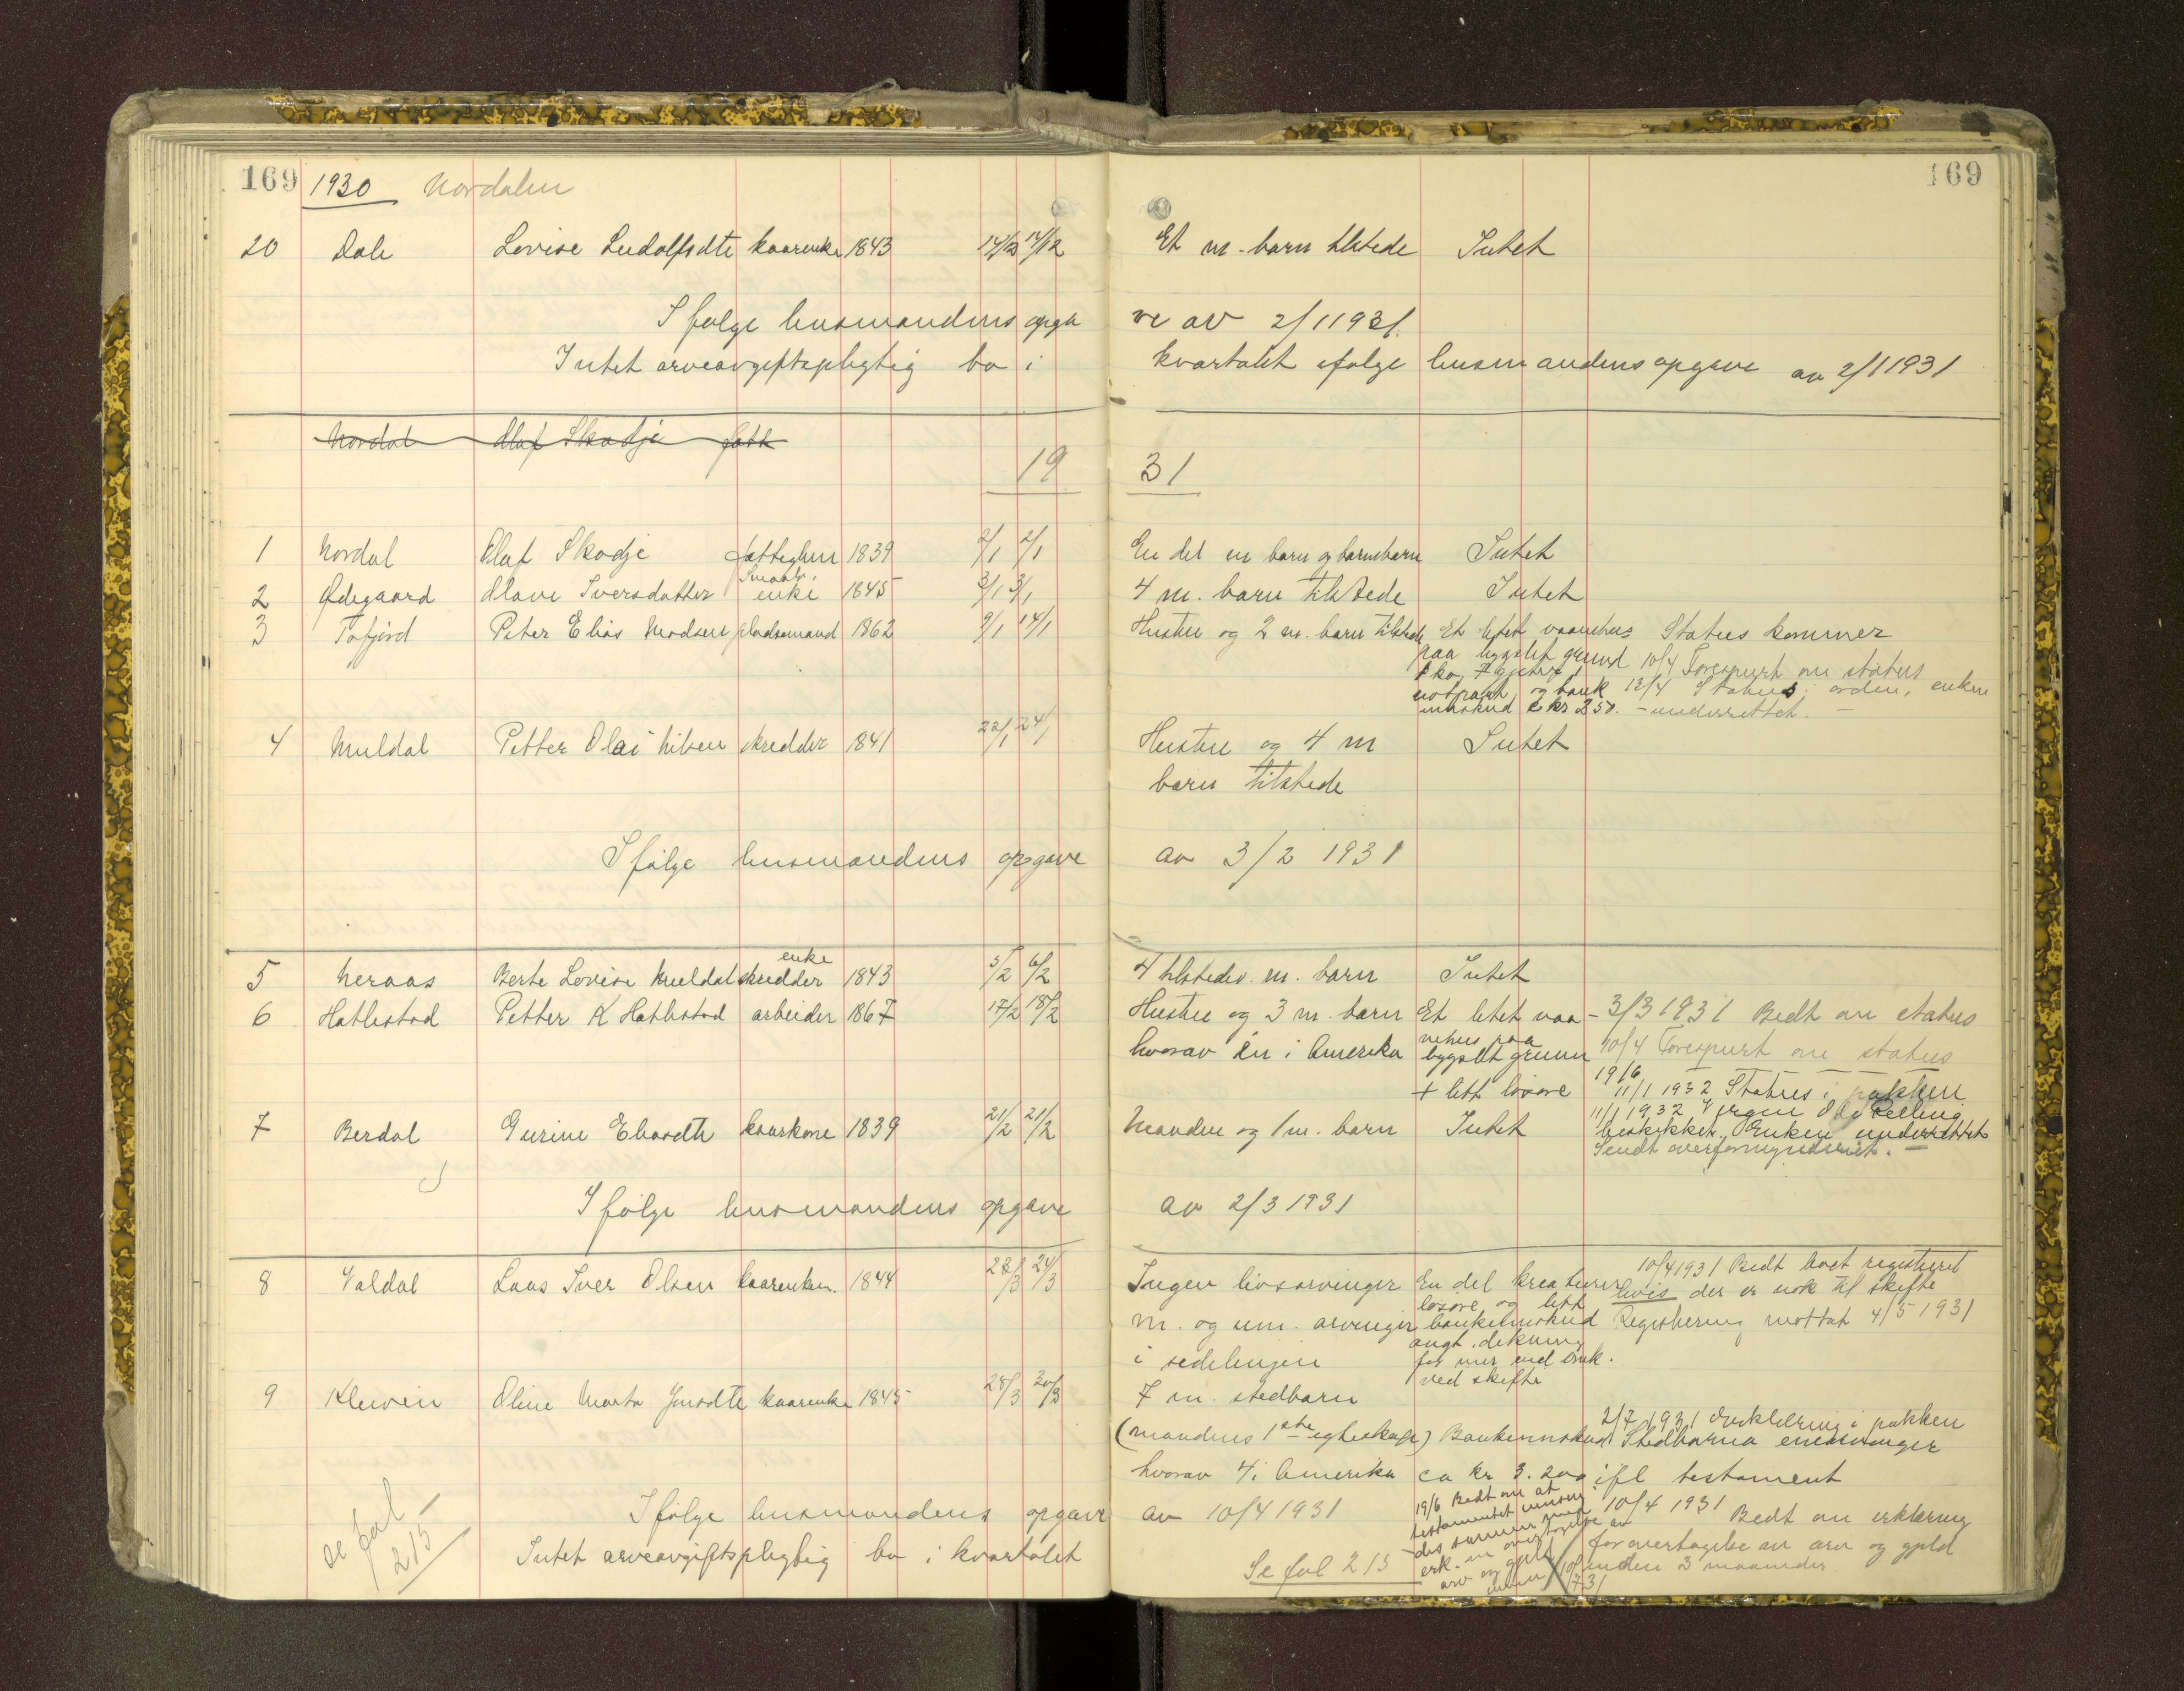 169 1930 Nordalen 169
20 Dale Lovise Ludolfsdtr kaarenke 1843 14/12 14/12 Et m. barn tilstede Intet
Ifølge lensmandens opga ve av 2/1 1931.
Intet arveavgiftspligtig bo i kvartalet ifølge lensmandens opgave av 2/1 1931
Nordal Olaf Skodje fatt
19 31
1 Nordal Olaf Skodje fattiglem 1839 2/1 2/1 En del m barn og barnebarn Intet
2 Ødegaard Olave Iversdatter enke 1845 3/1 3/1 4 m. barn tilstede Intet
3 Tafjord Peter Elias Madsen pladsemand 1862 9/1 14/1 Hustru og 2 m. barn tilstede Et litet vaanehus Status kommer
paa bygslet grund 10/4 Forespurt om status
1 ko, 7 gjeter,
notpart, og bank 13/4 Status i orden, enken
innskud ca kr 250. - underrettet. -
4 Muldal Petter Olai Nilsen skredder 1841 22/1 24/1 Hustru og 4 m Intet
barn tilstede
Ifølge lensmandens opgave av 3/2 1931
enke
5 Neraas Berte Lovise Muldal skredder 1843 5/2 6/2 4 tilstedev. m. barn Intet
6 Hatlestad Petter K Hatlestad arbeider 1867 17/2 18/2 Hustru og 3 m. barn Et litet vaa- 3/3 1931 Bedt om status
hvorav én i Amerika nehus paa
bygslet grunn 10/4 Forespurt om status
+ litt løsøre 19/6
11/1 1932 Status i pakken
7 Berdal Gurine Elvardtr kaarkone 1839 21/2 21/2 Manden og 1 m. barn Intet 11/1 1932 Verge Ole Relling
beskikket. Enken underrettet
Sendt overformynderiet. -
Ifølge lensmandens opgave av 2/3 1931
8 Valdal Laas Iver Olsen kaarenkem. 1844 22/3 24/3 Ingen livsarvinger En del kreaturer 10/4 1931 Bedt boet registreret
løsøre og litt hvis der er nok til skifte
m. og um. arvinger bankinnskud Registrering mottat 4/5 1931
i sidelinjen angt. dekning
for mer end omk.
ved skifte
9 Kleiven Oline Marta Jensdtr kaarenke 1845 28/3 30/3 7 m. stedbarn
(mandens 1ste egteskap) Bankinnskud 2/7 1931 Erklæring i pakken
Stedbarna enearvinger
hvorav 4 i Amerika ca kr 3.200 ifl testament
Ifølge lensmandens opgave av 10/4 1931 19/6 Bedt om at 10/4 1931 Bedt om erklæring
testamentet innsen
des sammen med
erk. om overtagelse av for overtagelse av arv og gjeld
arv og gjeld innen 3 maaneder
innen 10/7 31
Intet arveavgiftspligtig bo i kvartalet Se fol 215
se fol 215